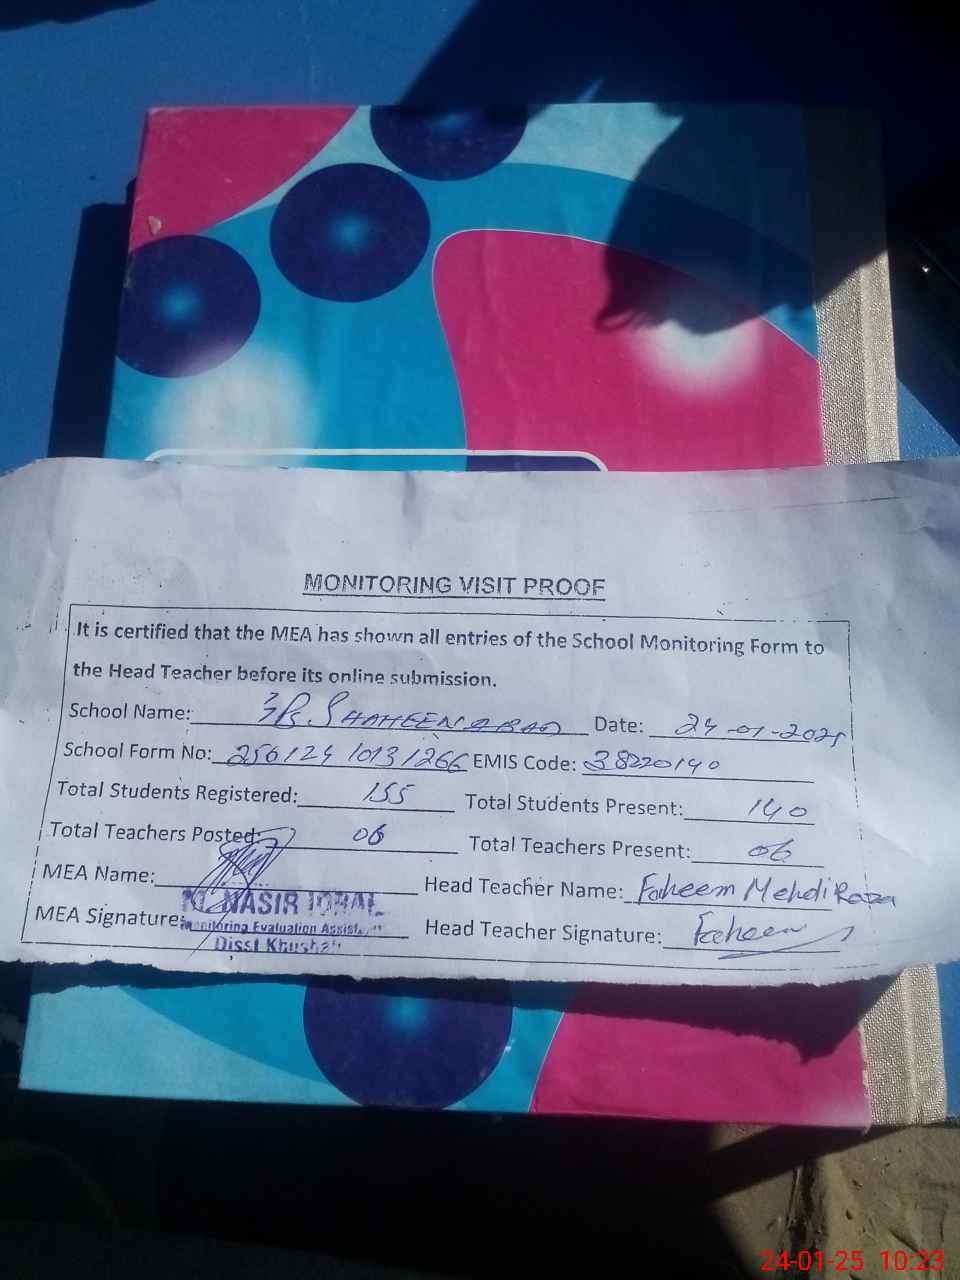 MONITORING VISIT PROOF
It is certified that the MEA has shown all entries of the School Monitoring Form to
the Head Teacher before its online submission.
School Name: SHAHEENABAD Date: 24-01-2025
School Form No: 256124 10131266 EMIS Code: 38220140
Total Students Registered: 155 Total Students Present: 140
Total Teachers Posted: 06 Total Teachers Present: 06
MEA Name: Head Teacher Name: Faheem Mehdi Raza
NASIR IQBAL
MEA Signature: Head Teacher Signature: Faheem
Monitoring Evaluation Assist
Disst Khushab
24-01-25 10:23